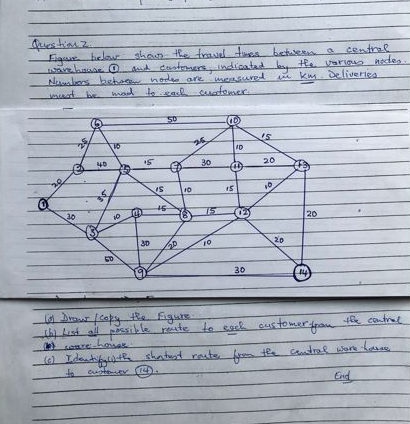 Question 2.
Figure below shows the travel times between a central
warehouse ① and customers, indicated by the various nodes.
Numbers between nodes are measured in km. Deliveries
must be mad to each customer.
6 50 10
25 10 25 10 15
40 5 15 7 30 11 20 13
20 35 15 10 15 10
1 30 10 4 15 8 15 12 20
3 30 20 10 20
50 9 30 14
(a) Draw/copy the Figure
(b) List all possible route to each customer from the central
ware-house
(c) Identify the shortest route from the central ware-house
to customer ⑭.
End